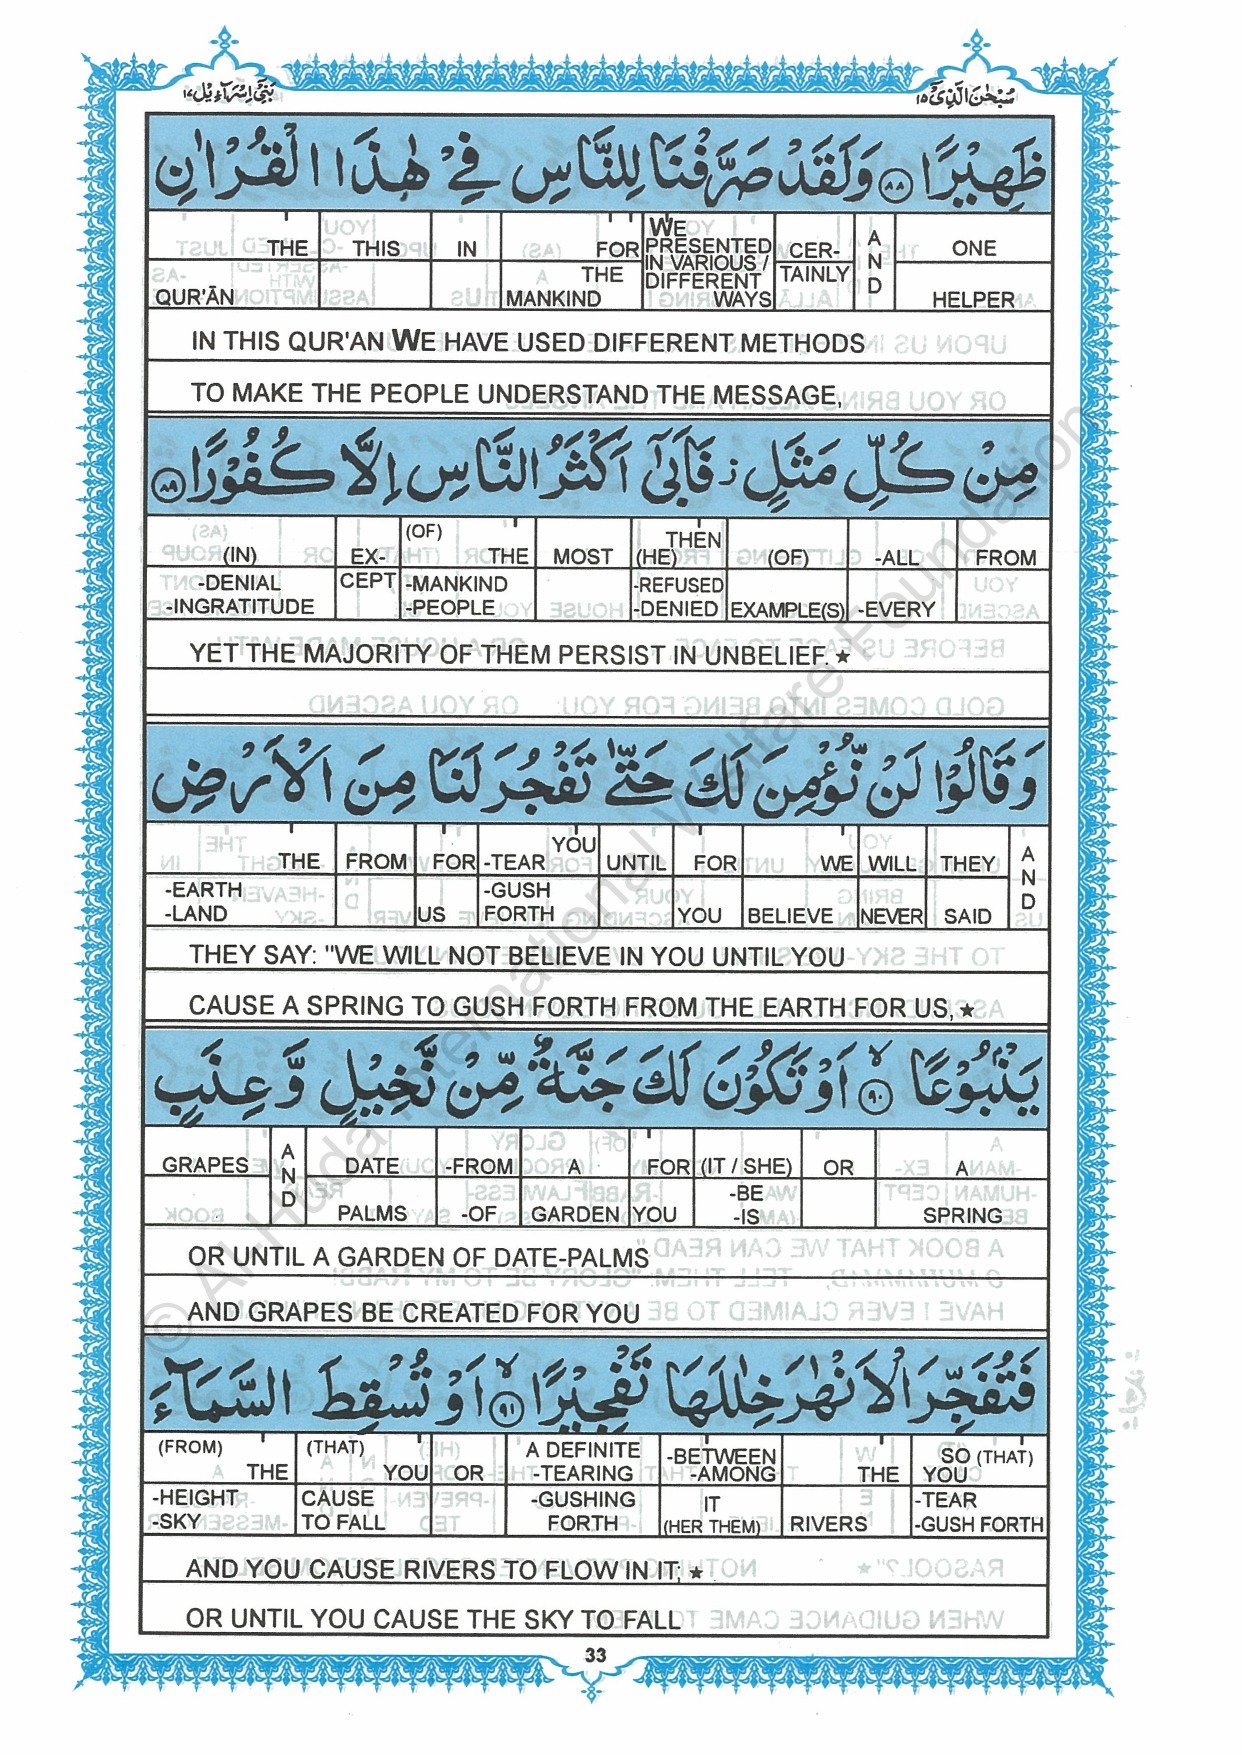 بَنِيْٓ اِسْرَآءِيْل ١٧
سُبْحٰنَ الَّذِيْٓ ١٥
ظَهِيْرًا ﴿٨٨﴾ وَلَقَدْ صَرَّفْنَا لِلنَّاسِ فِيْ هٰذَا الْقُرْاٰنِ
THE THIS IN FOR WE PRESENTED IN VARIOUS / DIFFERENT WAYS CER- TAINLY AND ONE
QUR'ĀN THE MANKIND HELPER
IN THIS QUR'AN WE HAVE USED DIFFERENT METHODS
TO MAKE THE PEOPLE UNDERSTAND THE MESSAGE,
مِنْ كُلِّ مَثَلٍ ز فَاَبٰىٓ اَكْثَرُ النَّاسِ اِلَّا كُفُوْرًا ﴿٨٩﴾
(IN) EX- (OF) THE MOST THEN (HE) (OF) -ALL FROM
-DENIAL -INGRATITUDE CEPT -MANKIND -PEOPLE -REFUSED -DENIED EXAMPLE(S) -EVERY
YET THE MAJORITY OF THEM PERSIST IN UNBELIEF.★
وَقَالُوْا لَنْ نُّؤْمِنَ لَكَ حَتّٰى تَفْجُرَ لَنَا مِنَ الْاَرْضِ
THE FROM FOR YOU -TEAR UNTIL FOR WE WILL THEY AND
-EARTH -LAND US -GUSH FORTH YOU BELIEVE NEVER SAID
THEY SAY: "WE WILL NOT BELIEVE IN YOU UNTIL YOU
CAUSE A SPRING TO GUSH FORTH FROM THE EARTH FOR US,★
يَنْۢبُوْعًا ﴿٩٠﴾ لا اَوْ تَكُوْنَ لَكَ جَنَّةٌ مِّنْ نَّخِيْلٍ وَّعِنَبٍ
GRAPES AND DATE -FROM A FOR (IT / SHE) OR A
PALMS -OF GARDEN YOU -BE -IS SPRING
OR UNTIL A GARDEN OF DATE-PALMS
AND GRAPES BE CREATED FOR YOU
فَتُفَجِّرَ الْاَنْهٰرَ خِلٰلَهَا تَفْجِيْرًا ﴿٩١﴾ لا اَوْ تُسْقِطَ السَّمَآءَ
(FROM) THE (THAT) YOU OR A DEFINITE -TEARING -BETWEEN -AMONG THE SO (THAT) YOU
-HEIGHT -SKY CAUSE TO FALL -GUSHING FORTH IT (HER THEM) RIVERS -TEAR -GUSH FORTH
AND YOU CAUSE RIVERS TO FLOW IN IT; ★
OR UNTIL YOU CAUSE THE SKY TO FALL
33
© Al Huda International Welfare Foundation